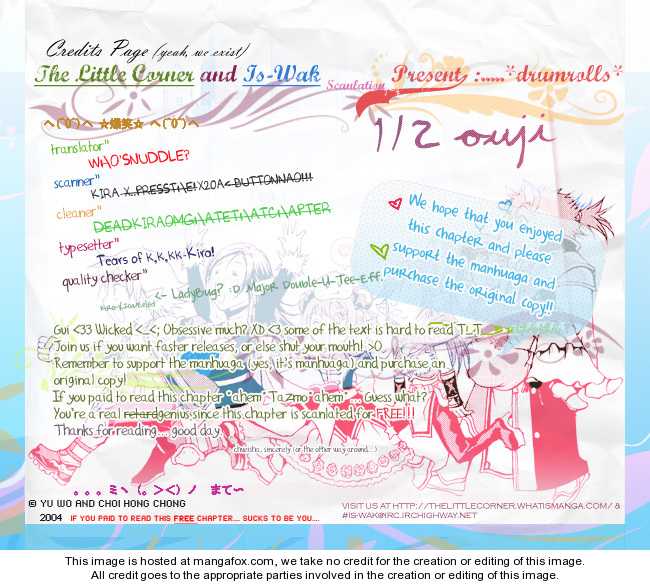 Credits Page (yeah, we exist)
The Little Corner and Is-Wak Scanlation Present, :.....*drumrolls*
1/2 ouji
へ(^0^)へ ☆爆笑☆ へ(^0^)へ
translator"
WHO'SNUDDLE?
scanner"
KIRA X..PRESSTHE!X20A< BUTTONNAO!!!!
cleaner"
DEADKIRAOMGIHATETHATCHAPTER
typesetter"
Tears of K,K,KK-Kira!
quality checker"
<- LadyBug? :D Major Double-U-Tee-Eff.
We hope that you enjoyed
this chapter and please
support the manhuaga and
purchase the original copy!!
Gui <33 Wicked <_<; Obsessive much? XD <3 some of the text is hard to read T_T
Join us if you want faster releases, or else shut your mouth! >0
Remember to support the manhuaga (yes, it's manhuaga) and purchase an
original copy!
If you paid to read this chapter *ahem* Tazmo *ahem* ... Guess what?
You're a real retardgenius since this chapter is scanlated for FREE!!!
Thanks for reading... good day.
。。。ミヽ(。><)ノ まて~
© YU WO AND CHOI HONG CHONG
2004 IF YOU PAID TO READ THIS FREE CHAPTER... SUCKS TO BE YOU...
VISIT US AT HTTP://THELITTLECORNER.WHATISMANGA.COM/ &
#IS-WAK@IRC.IRCHIGHWAY.NET
This image is hosted at mangafox.com, we take no credit for the creation or editing of this image.
All credit goes to the appropriate parties involved in the creation or editing of this image.